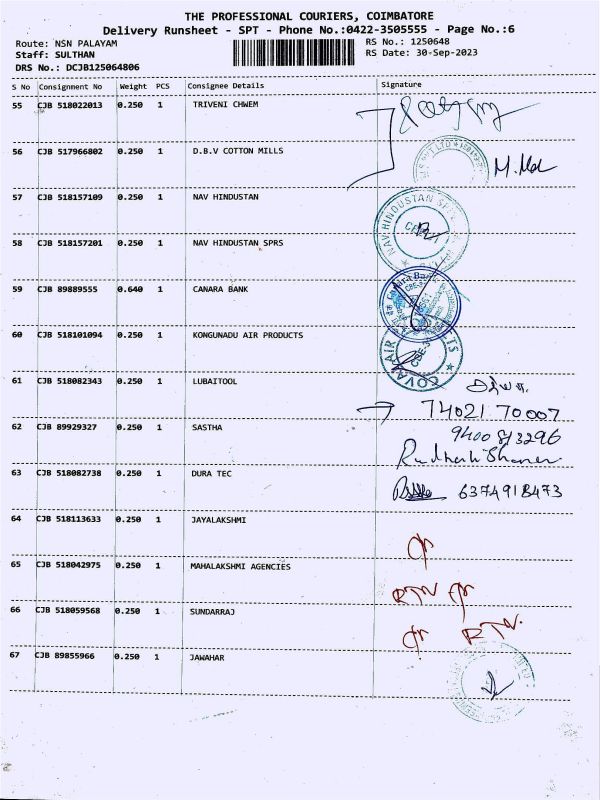 THE PROFESSIONAL COURIERS, COIMBATORE
Delivery Runsheet - SPT - Phone No.:0422-3505555 - Page No.:6
Route: NSN PALAYAM
Staff: SULTHAN
DRS No.: DCJB125064806
RS No.: 1250648
RS Date: 30-Sep-2023
S No Consignment No Weight PCS Consignee Details Signature
55 CJB 518022013 0.250 1 TRIVENI CHWEM
56 CJB 517966802 0.250 1 D.B.V COTTON MILLS
57 CJB 518157109 0.250 1 NAV HINDUSTAN
NAV HINDUSTAN
58 CJB 518157201 0.250 1 NAV HINDUSTAN SPRS
59 CJB 89889555 0.640 1 CANARA BANK
Canara Bank
60 CJB 518101094 0.250 1 KONGUNADU AIR PRODUCTS
61 CJB 518082343 0.250 1 LUBAITOOL
74021 70007
62 CJB 89929327 0.250 1 SASTHA
9400813296
63 CJB 518082738 0.250 1 DURA TEC
6374918473
64 CJB 518113633 0.250 1 JAYALAKSHMI
65 CJB 518042975 0.250 1 MAHALAKSHMI AGENCIES
RTN
66 CJB 518059568 0.250 1 SUNDARRAJ
RTN.
67 CJB 89855966 0.250 1 JAWAHAR